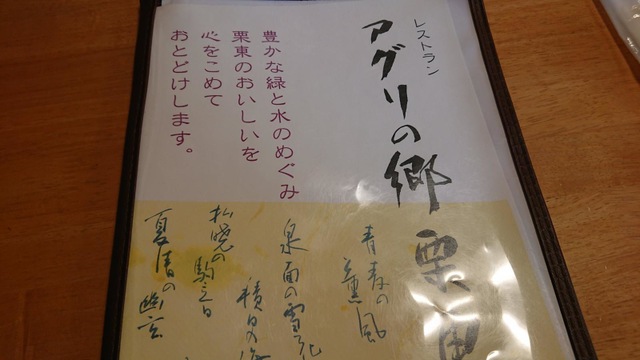 レストラン
アグリの郷 栗東
豊かな緑と水のめぐみ
栗東のおいしいを
心をこめて
おとどけします。
青麦の薫風
泉面の雪花
積日の
松暁の駒音
夏宵の幽玄